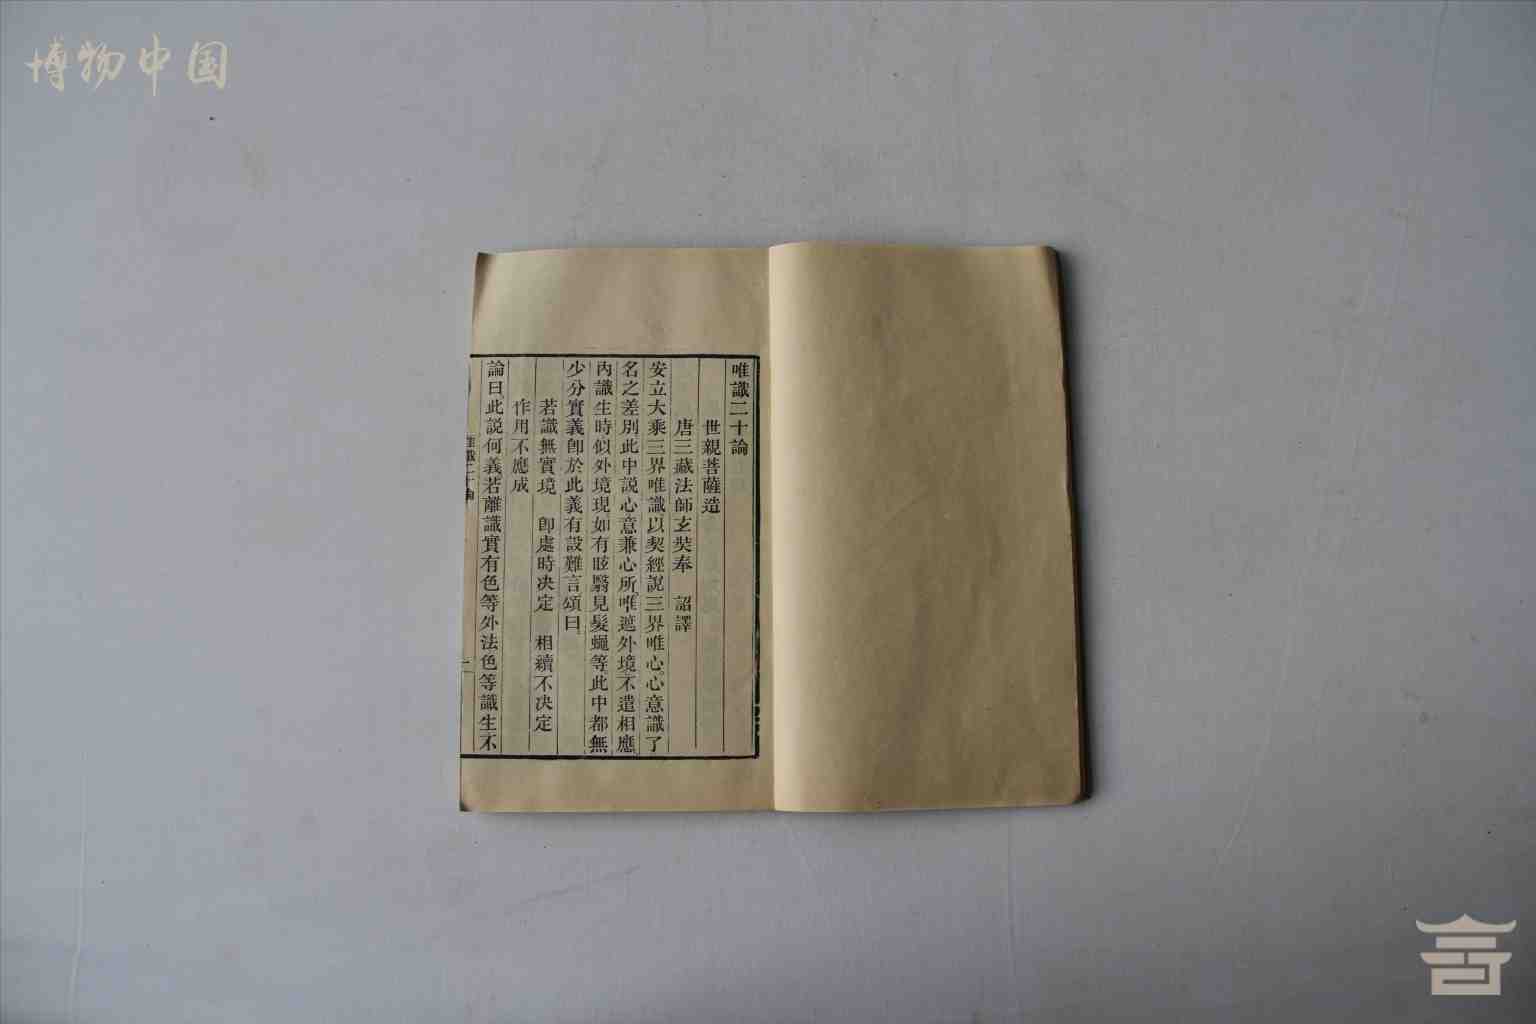 博物中国
唯識二十論
世親菩薩造
唐三藏法師玄奘奉 詔譯
安立大乘三界唯識以契經說三界唯心。心意識了
名之差別此中說心意兼心所。唯遮外境。不遣相應
內識生時似外境現如有眩瞖見髮蠅等。此中都無
少分實義卽於此義有設難言頌曰。
若識無實境 卽處時决定 相續不决定
作用不應成
論曰。此說何義若離識實有色等外法色等識生不
唯識二十論
一